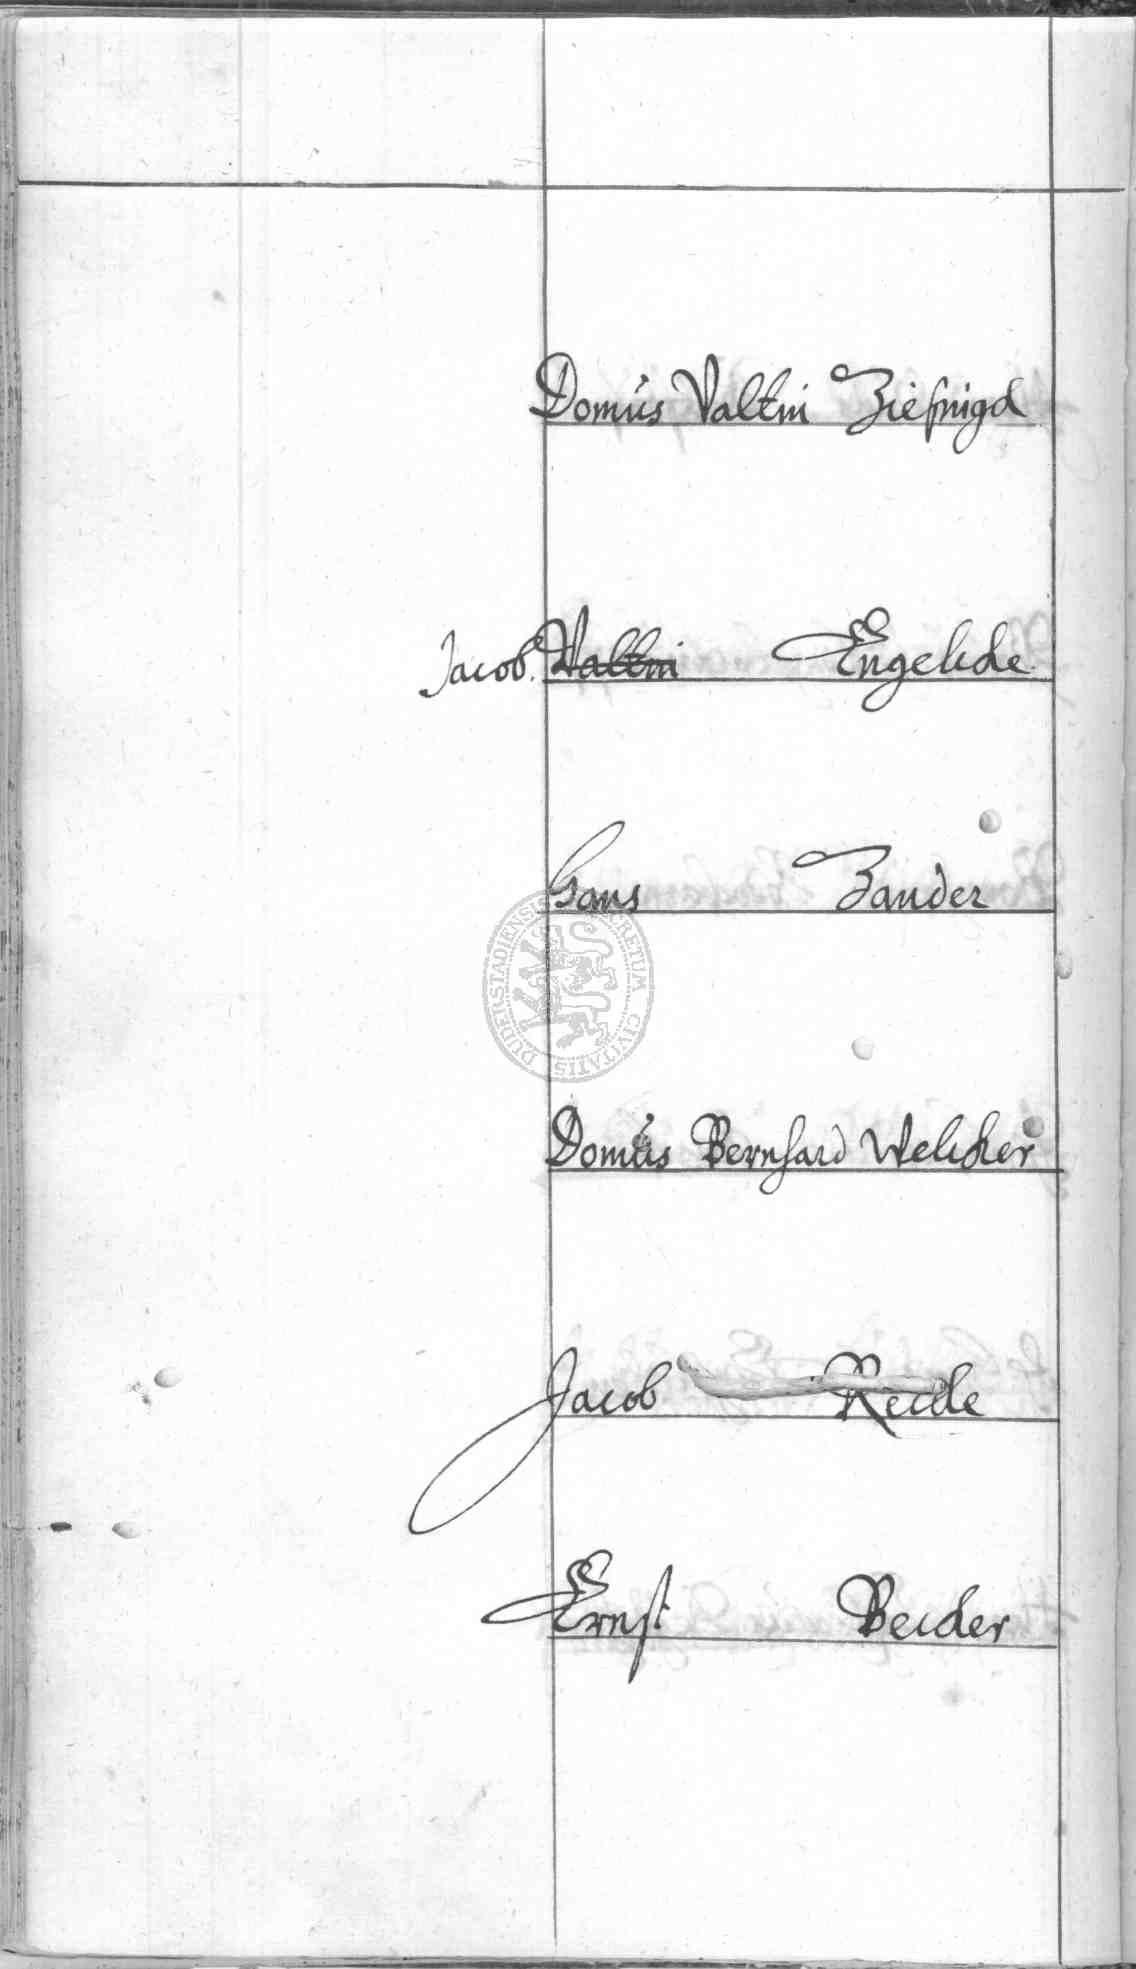 Domus Valtin Ziesnigd
Jacob. Valtin Engelcke
Hans Zander
SECRETUM CIVITATIS DUDERSTADIENSIS
Domus Bernhard Welcker
Jacob Recke
Ernst Becker